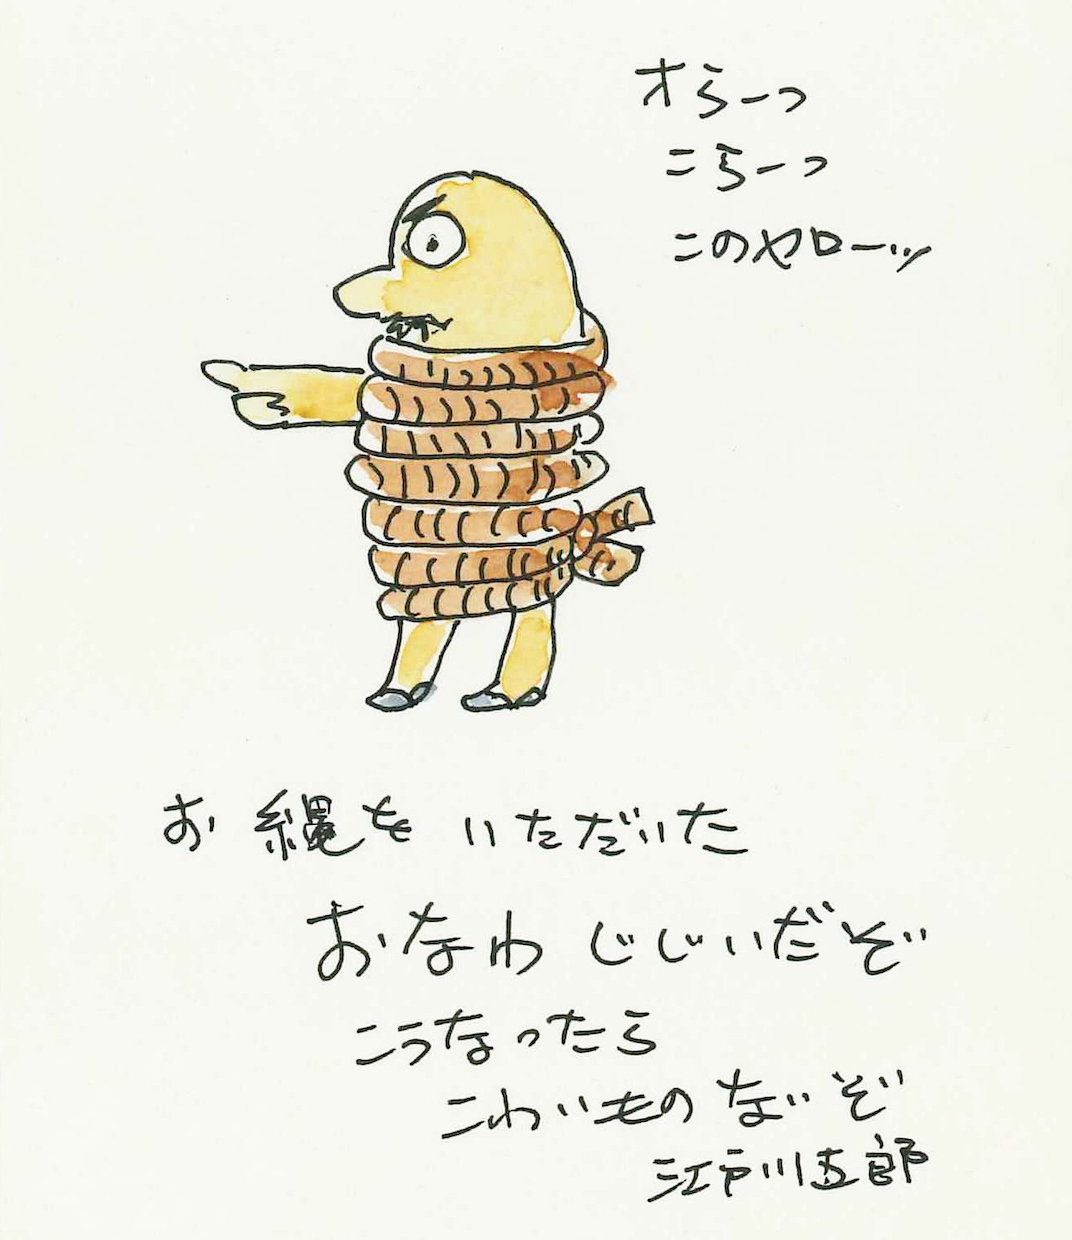 オらーっ
こらーっ
このヤローッ
お縄をいただいた
おなわじじいだぞ
こうなったら
こわいものないぞ
江戸川五郎